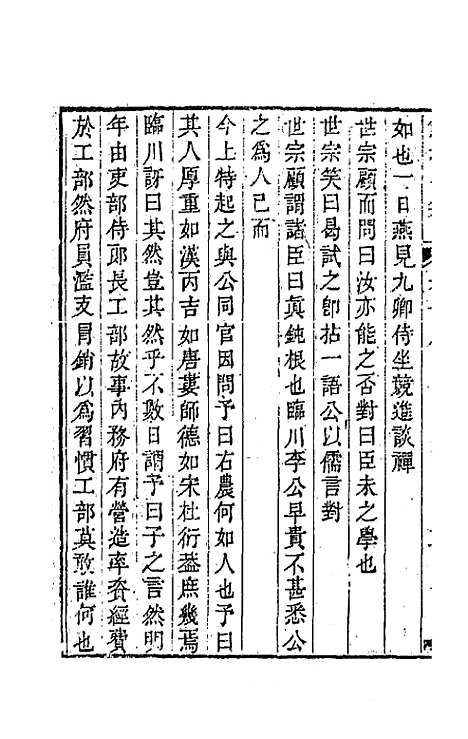 如也一日燕見九卿侍坐競進談禪
世宗顧而問曰汝亦能之否對曰臣未之學也
世宗笑曰曷試之卽拈一語公以儒言對
世宗顧謂諸臣曰眞鈍根也臨川李公早貴不甚悉公
之爲人已而
今上特起之與公同官因問予曰右農何如人也予曰
其人厚重如漢丙吉如唐婁師德如宋杜衍葢庶幾焉
臨川訝曰其然豈其然乎不數日謂予曰子之言然明
年由吏部侍郎長工部故事內務府有營造率資經費
於工部然府員濫支冐銷以爲習慣工部莫敢誰何也